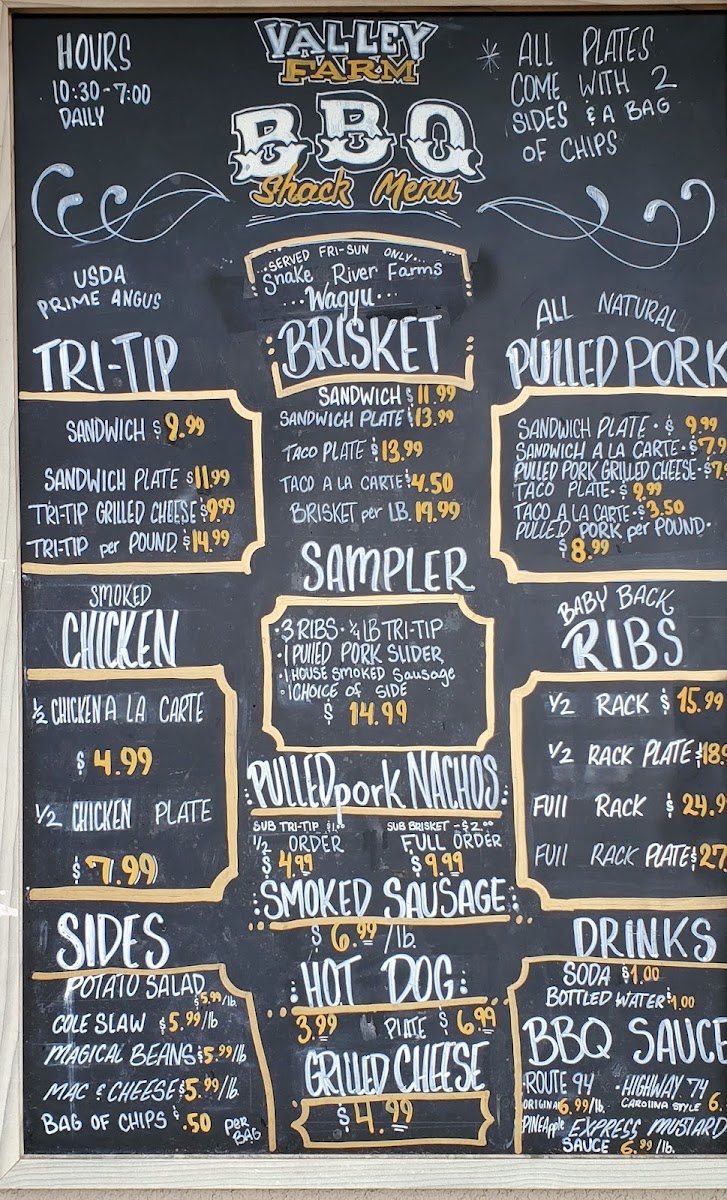 HOURS
10:30-7:00
DAILY
VALLEY
FARM
BBQ
Shack Menu
* ALL PLATES
COME WITH 2
SIDES & A BAG
OF CHIPS
USDA
PRIME ANGUS
TRI-TIP
SANDWICH $9.99
SANDWICH PLATE $11.99
TRI-TIP GRILLED CHEESE $9.99
TRI-TIP per POUND. $14.99
...SERVED FRI-SUN ONLY...
Snake River Farms
...Wagyu...
BRISKET
SANDWICH $11.99
SANDWICH PLATE $13.99
TACO PLATE $13.99
TACO A LA CARTE $4.50
BRISKET per LB. 19.99
ALL NATURAL
PULLED PORK
SANDWICH PLATE · $ 9.99
SANDWICH A LA CARTE · $7.9
PULLED PORK GRILLED CHEESE · $7.
TACO PLATE · $ 9.99
TACO A LA CARTE · $3.50
PULLED PORK per POUND ·
$8.99
SMOKED
CHICKEN
1/2 CHICKEN A LA CARTE
$ 4.99
1/2 CHICKEN PLATE
$7.99
SAMPLER
·3 RIBS · 1/4 LB TRI-TIP
·1 PULLED PORK SLIDER
·1 HOUSE SMOKED Sausage
·1 CHOICE OF SIDE
$ 14.99
BABY BACK
RIBS
1/2 RACK $ 15.99
1/2 RACK PLATE $18.9
FUll RACK $ 24.9
FUll RACK PLATE $27.
:PULLED pork NACHOS:
SUB TRI-TIP $1.00 SUB BRISKET - $2.00
1/2 ORDER FULL ORDER
$4.99 $9.99
:SMOKED SAUSAGE:
$ 6.99 /lb.
:HOT DOG:
3.99 PLATE $ 6.99
GRILLED CHEESE
$4.99
SIDES
POTATO SALAD
$5.99/lb.
COLE SLAW $5.99/lb
MAGICAL BEANS $5.99/lb
MAC & CHEESE $5.99/lb.
BAG OF CHIPS $.50 PER BAG
DRINKS
SODA $1.00
BOTTLED WATER $1.00
BBQ SAUCE
·ROUTE 94 ·HIGHWAY 74
ORIGINAL 6.99/lb. CAROLINA STYLE 6.
PINEApple EXPRESS MUSTARD
SAUCE 6.99/lb.